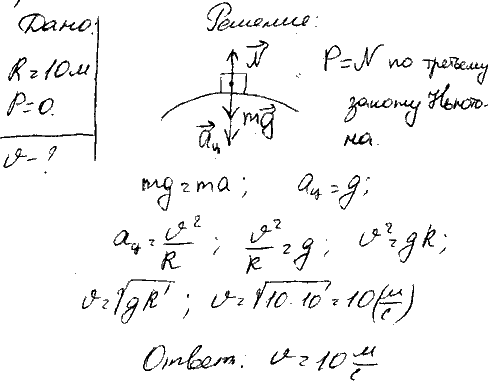 Дано: Решение:
R=10м
P=0.
υ-?
N
mg
aц
P=N по третьему
закону Ньюто-
на.
mg=ma; aц=g;
aц=υ²/R; υ²/R=g; υ²=gR;
υ=√gR; υ=√10·10=10(м/с)
Ответ: υ=10 м/с